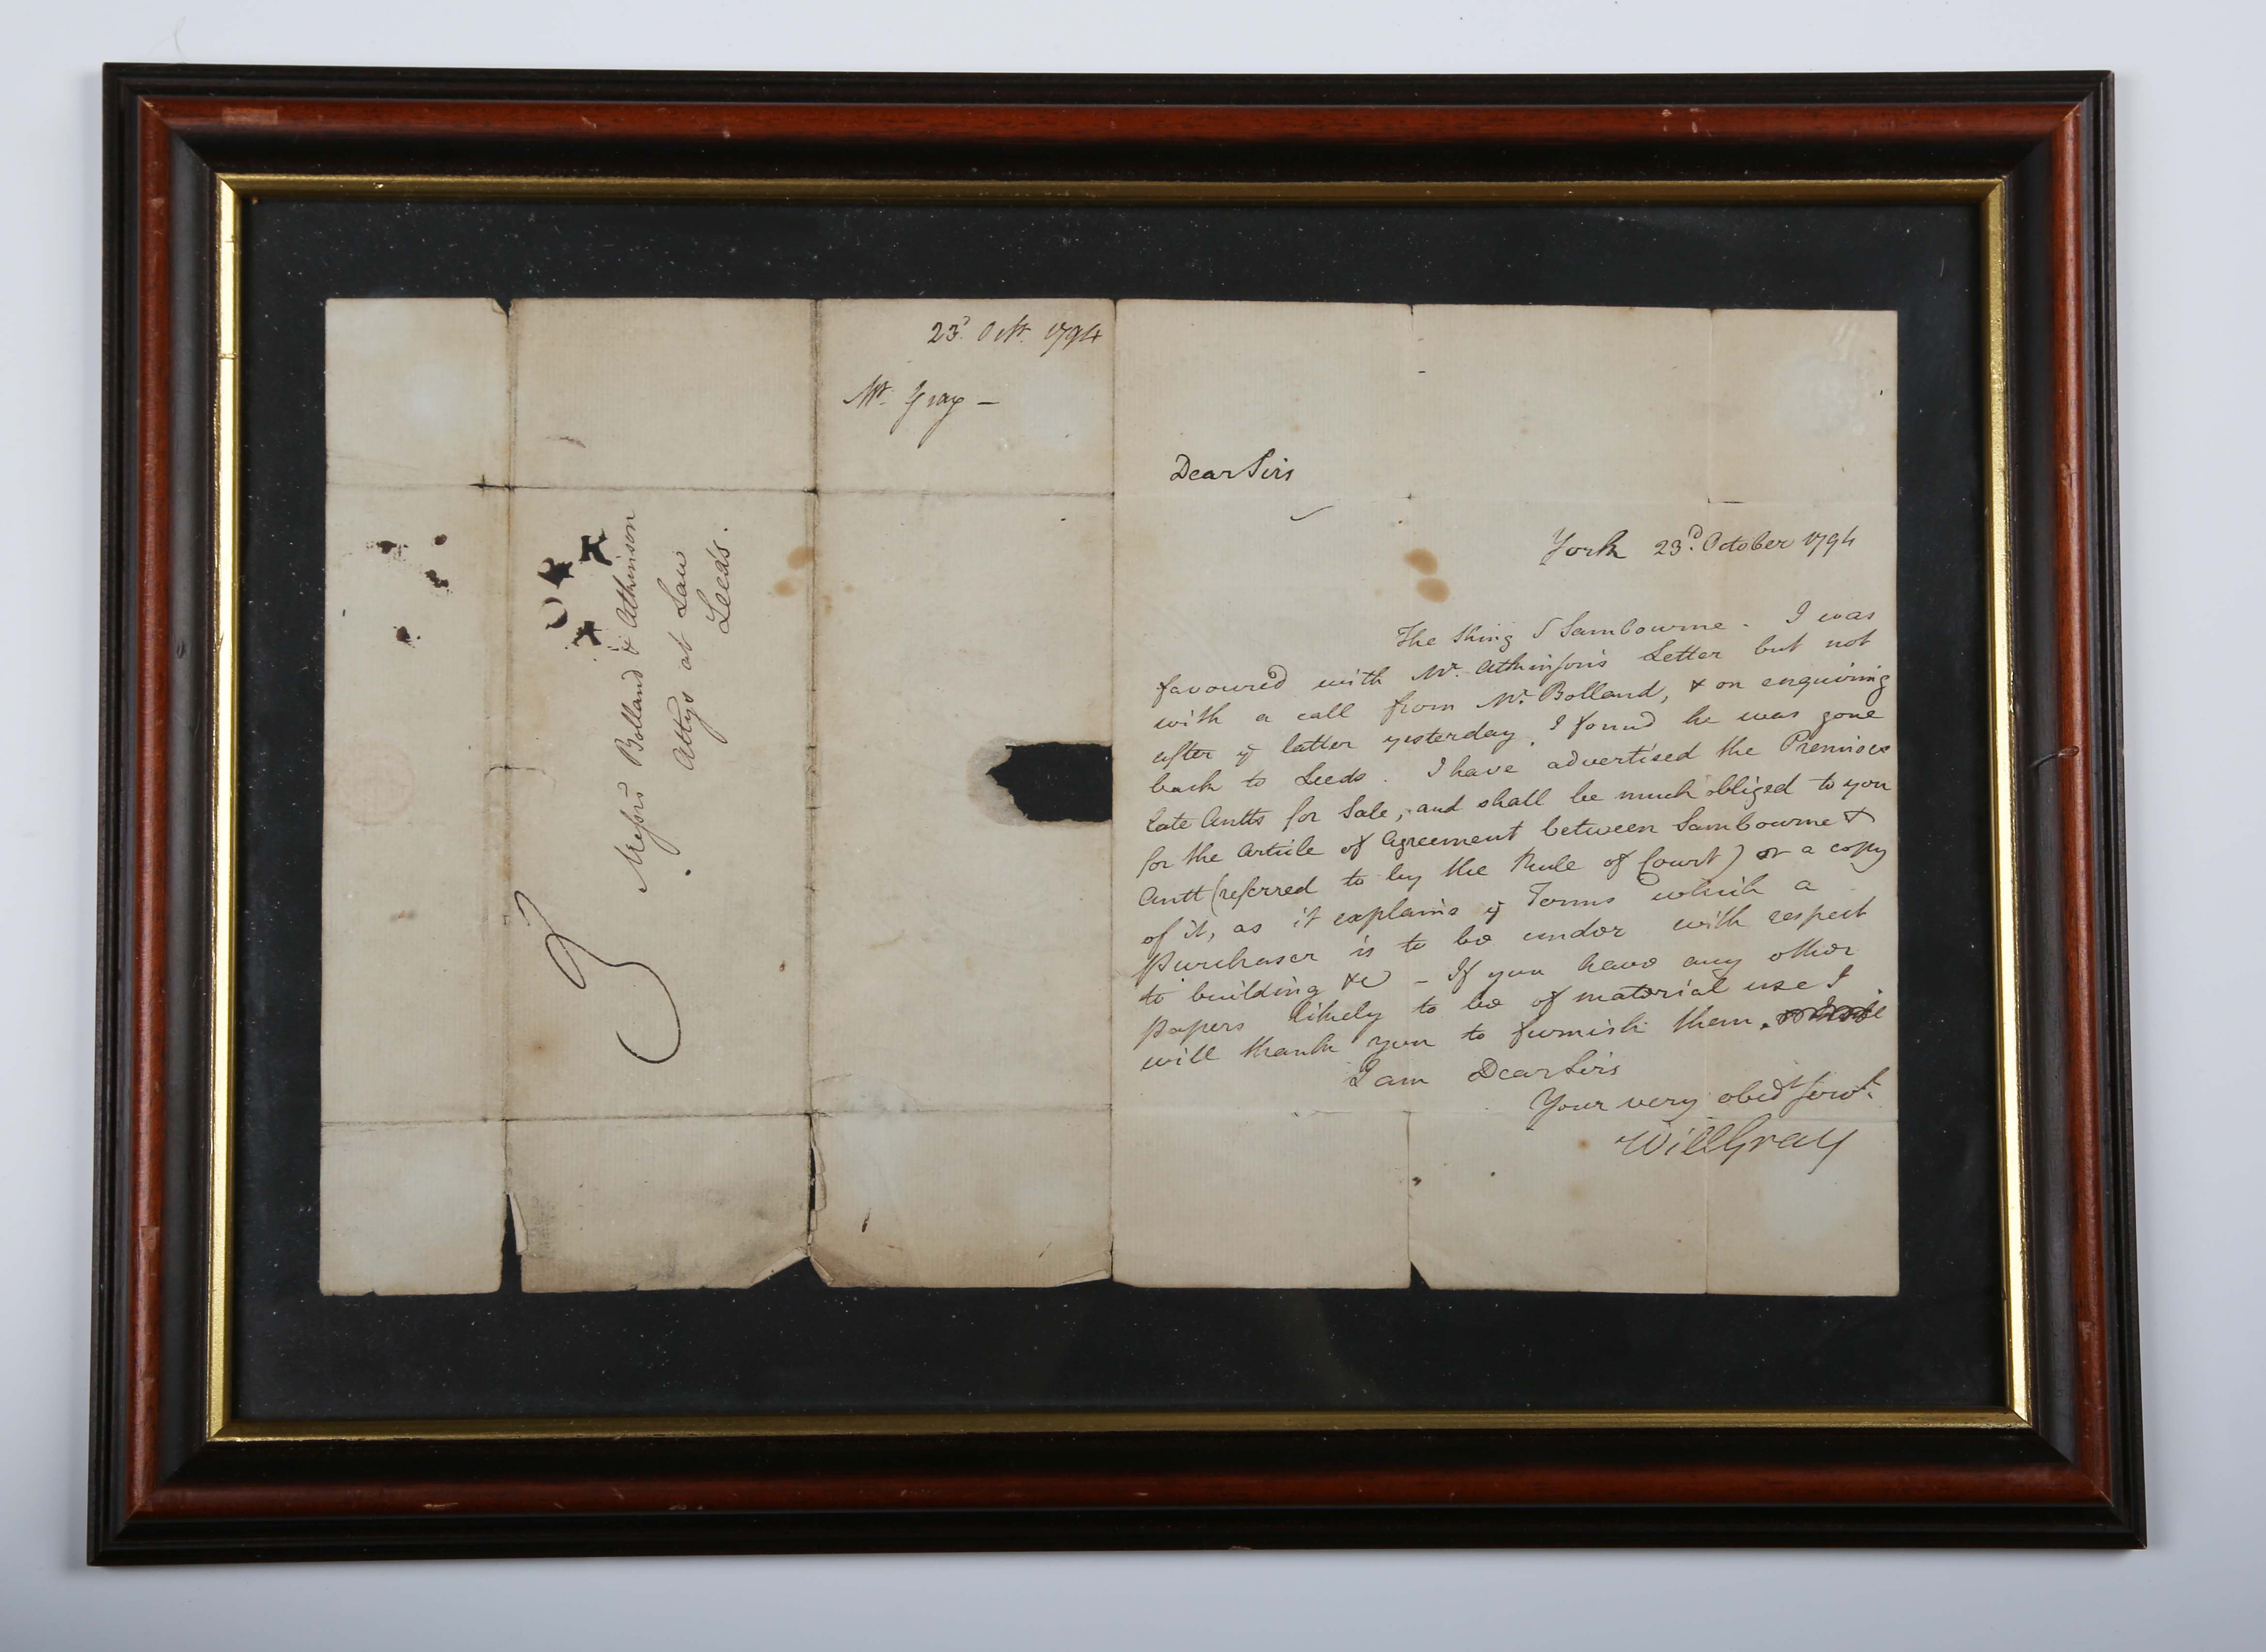 23d. Octr. 1794
Mr. Gray –
YORK
Messrs Bolland & Atkinson
Attys at Law
Leeds.
3
Dear Sirs
York 23d. October 1794
The King v Sambourne. I was
favoured with Mr. Atkinson's Letter but not
with a call from Mr. Bolland, & on enquiring
after ye latter yesterday, I found he was gone
back to Leeds. I have advertised the Premises
late Antts for Sale, and shall be much obliged to you
for the Article of Agreement between Sambourne &
Antt (referred to by the Rule of Court) or a copy
of it, as it explains ye Terms which a
purchaser is to be under with respect
to building &c – If you have any other
papers likely to be of material use I
will thank you to furnish them.
I am Dear Sirs
Your very obedt servt.
Will Gray